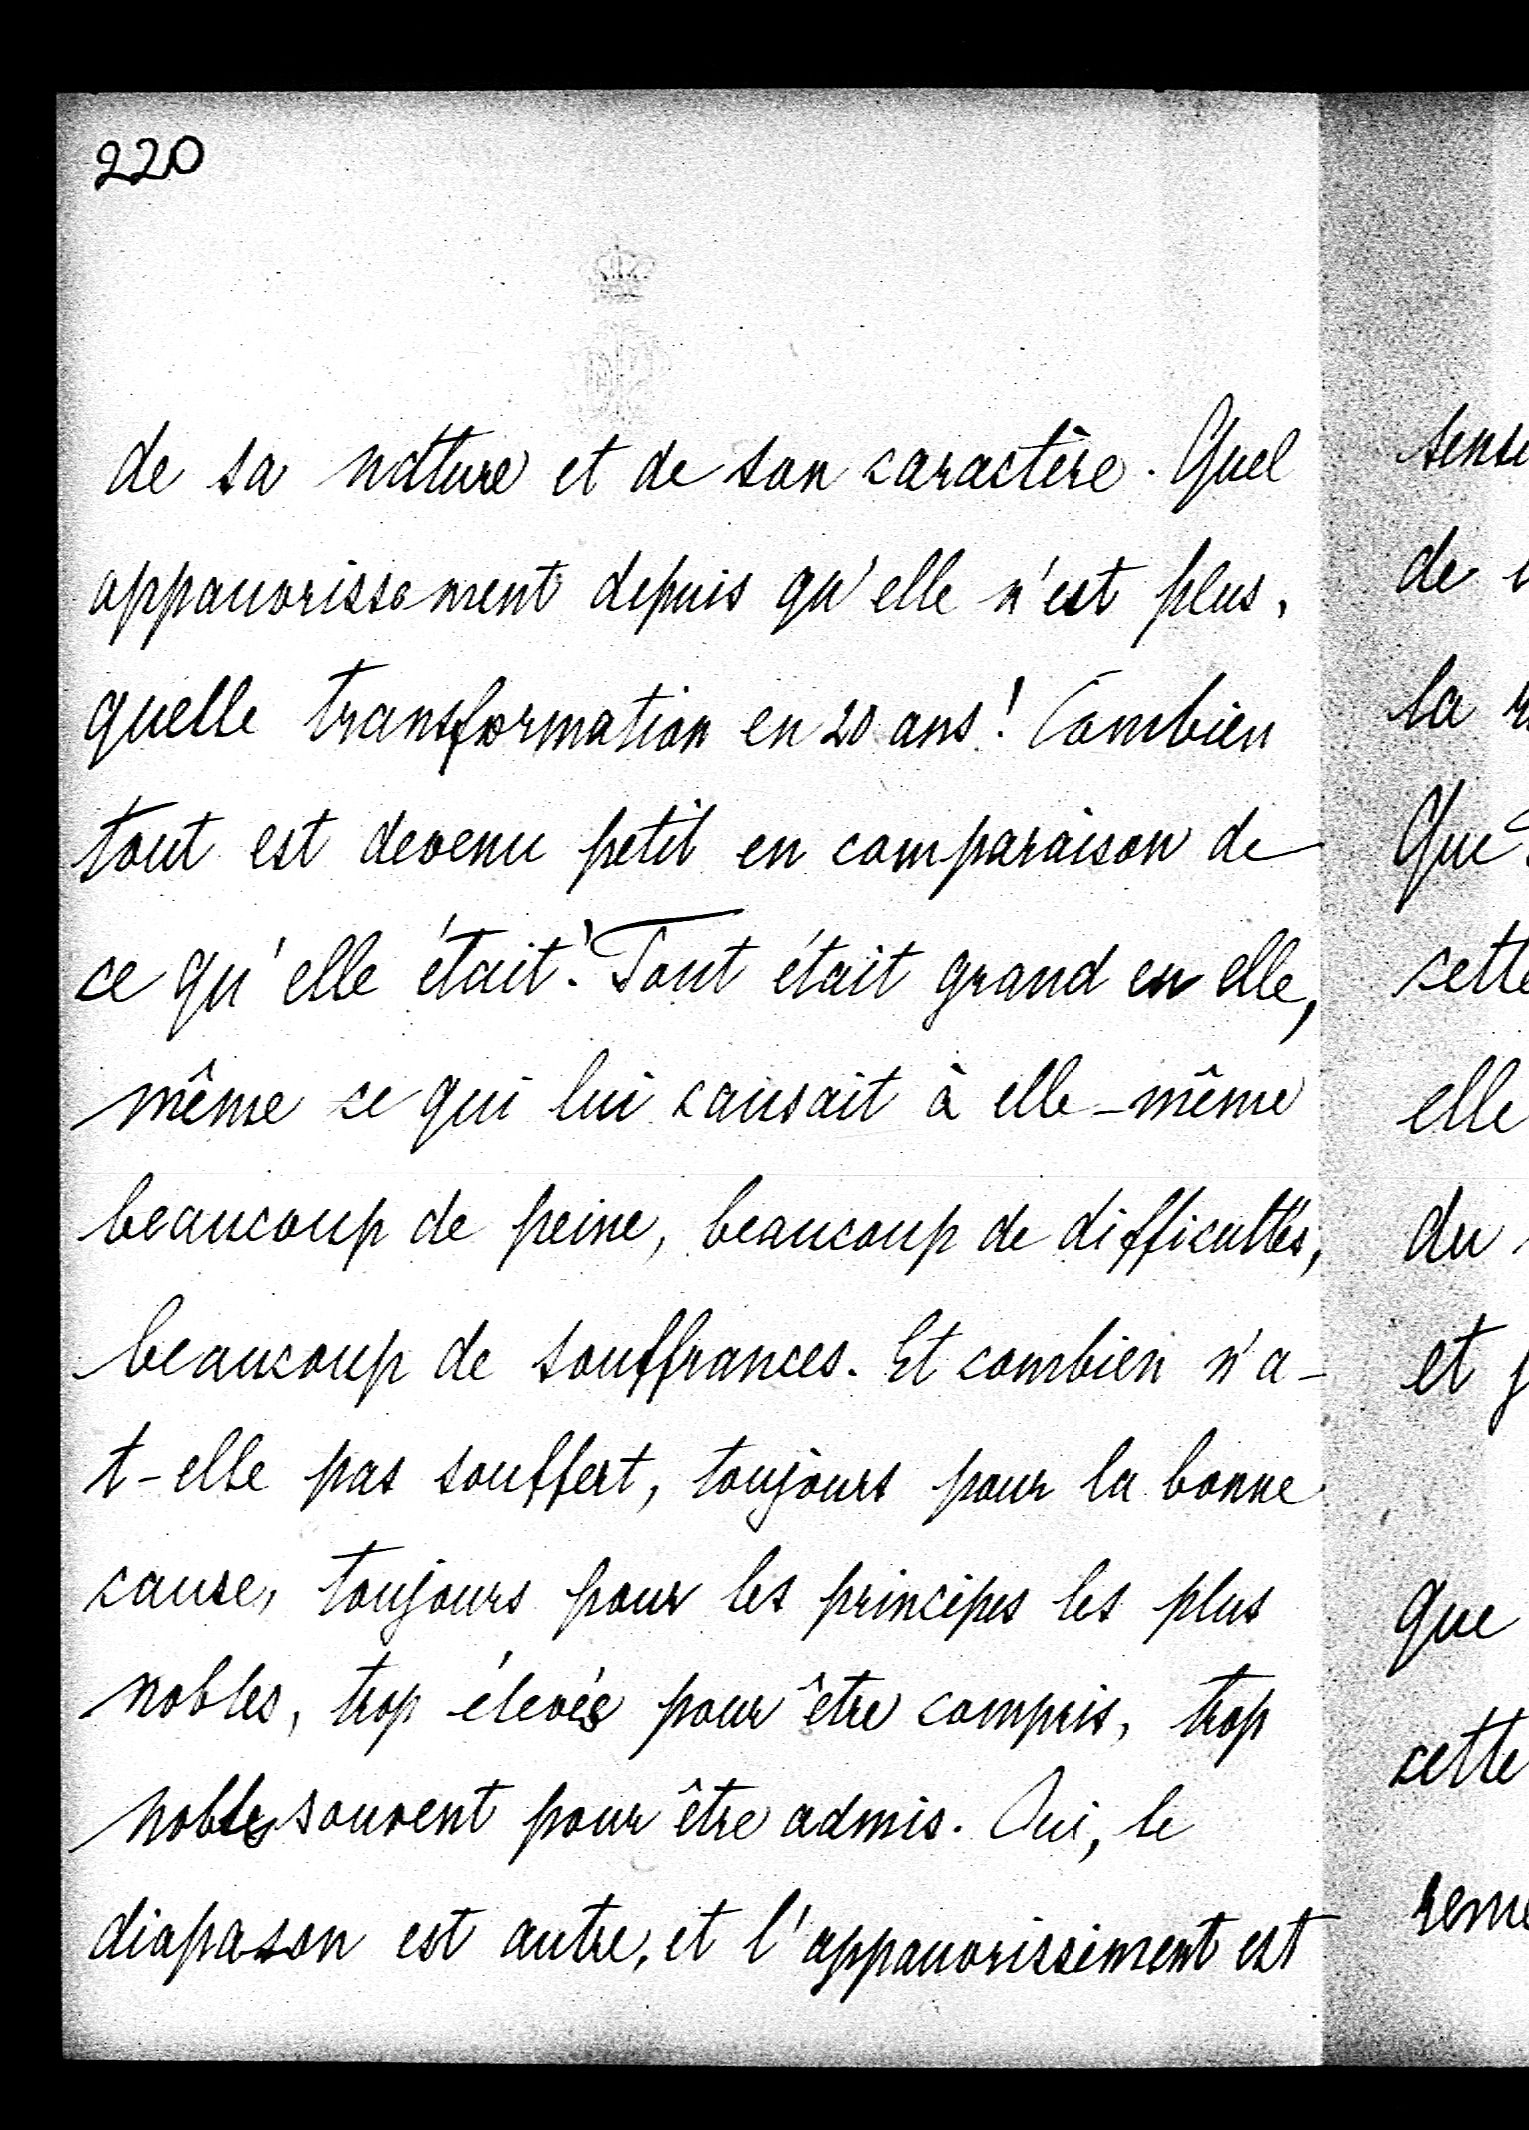 220
de sa nature et de son caractère. Quel
appauvrissement depuis qu'elle n'est plus,
quelle transformation en 20 ans! Combien
tout est devenu petit en comparaison de
ce qu'elle était! Tout était grand en elle,
même ce qui lui causait à elle-même
beaucoup de peine, beaucoup de difficultés,
beaucoup de souffrances. Et combien n'a-
t-elle pas souffert, toujours pour la bonne
cause, toujours pour les principes les plus
nobles, trop élevés pour être compris, trop
nobles souvent pour être admis. Oui, le
diapason est autre, et l'appauvrissement est
de
la
cette
elle
du
et
que
cette